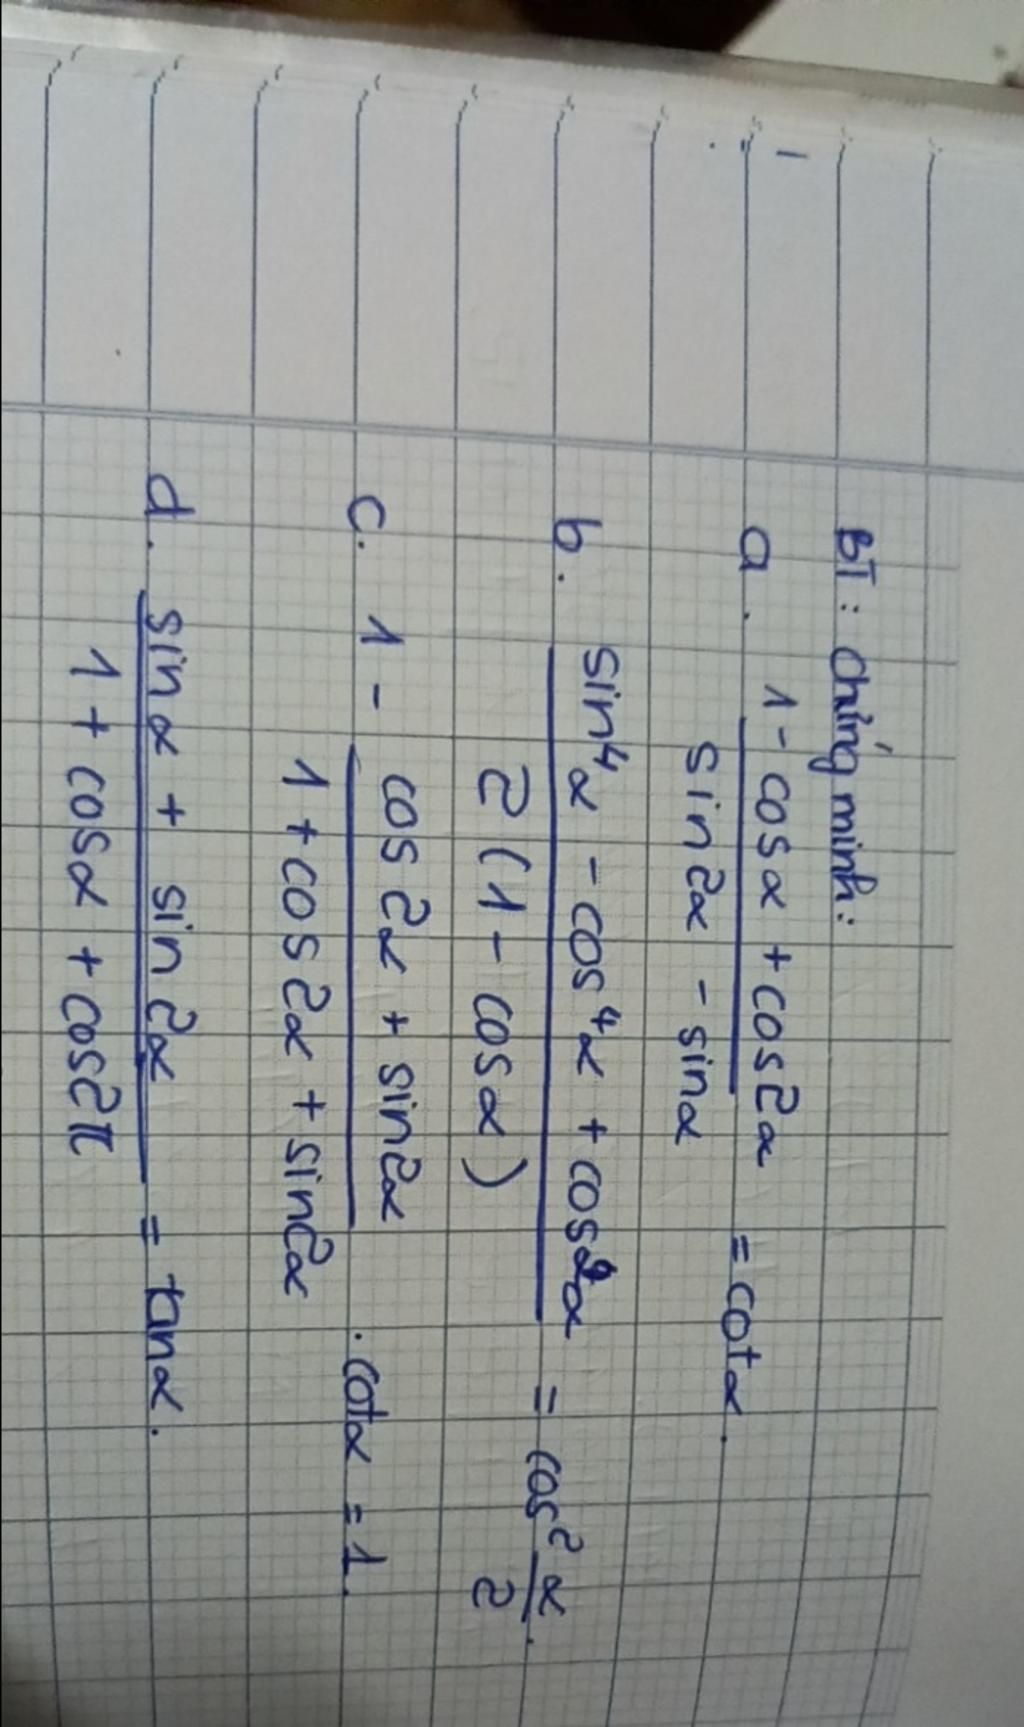 BT: Chứng minh:
a. 1 - cosα + cos2α / sin2α - sinα = cotα.
b. sin⁴α - cos⁴α + cos²α / 2(1 - cosα) = cos² α/2.
c. 1 - cos2α + sin2α / 1 + cos2α + sin2α . cotα = 1.
d. sinα + sin2α / 1 + cosα + cos2π = tanα.